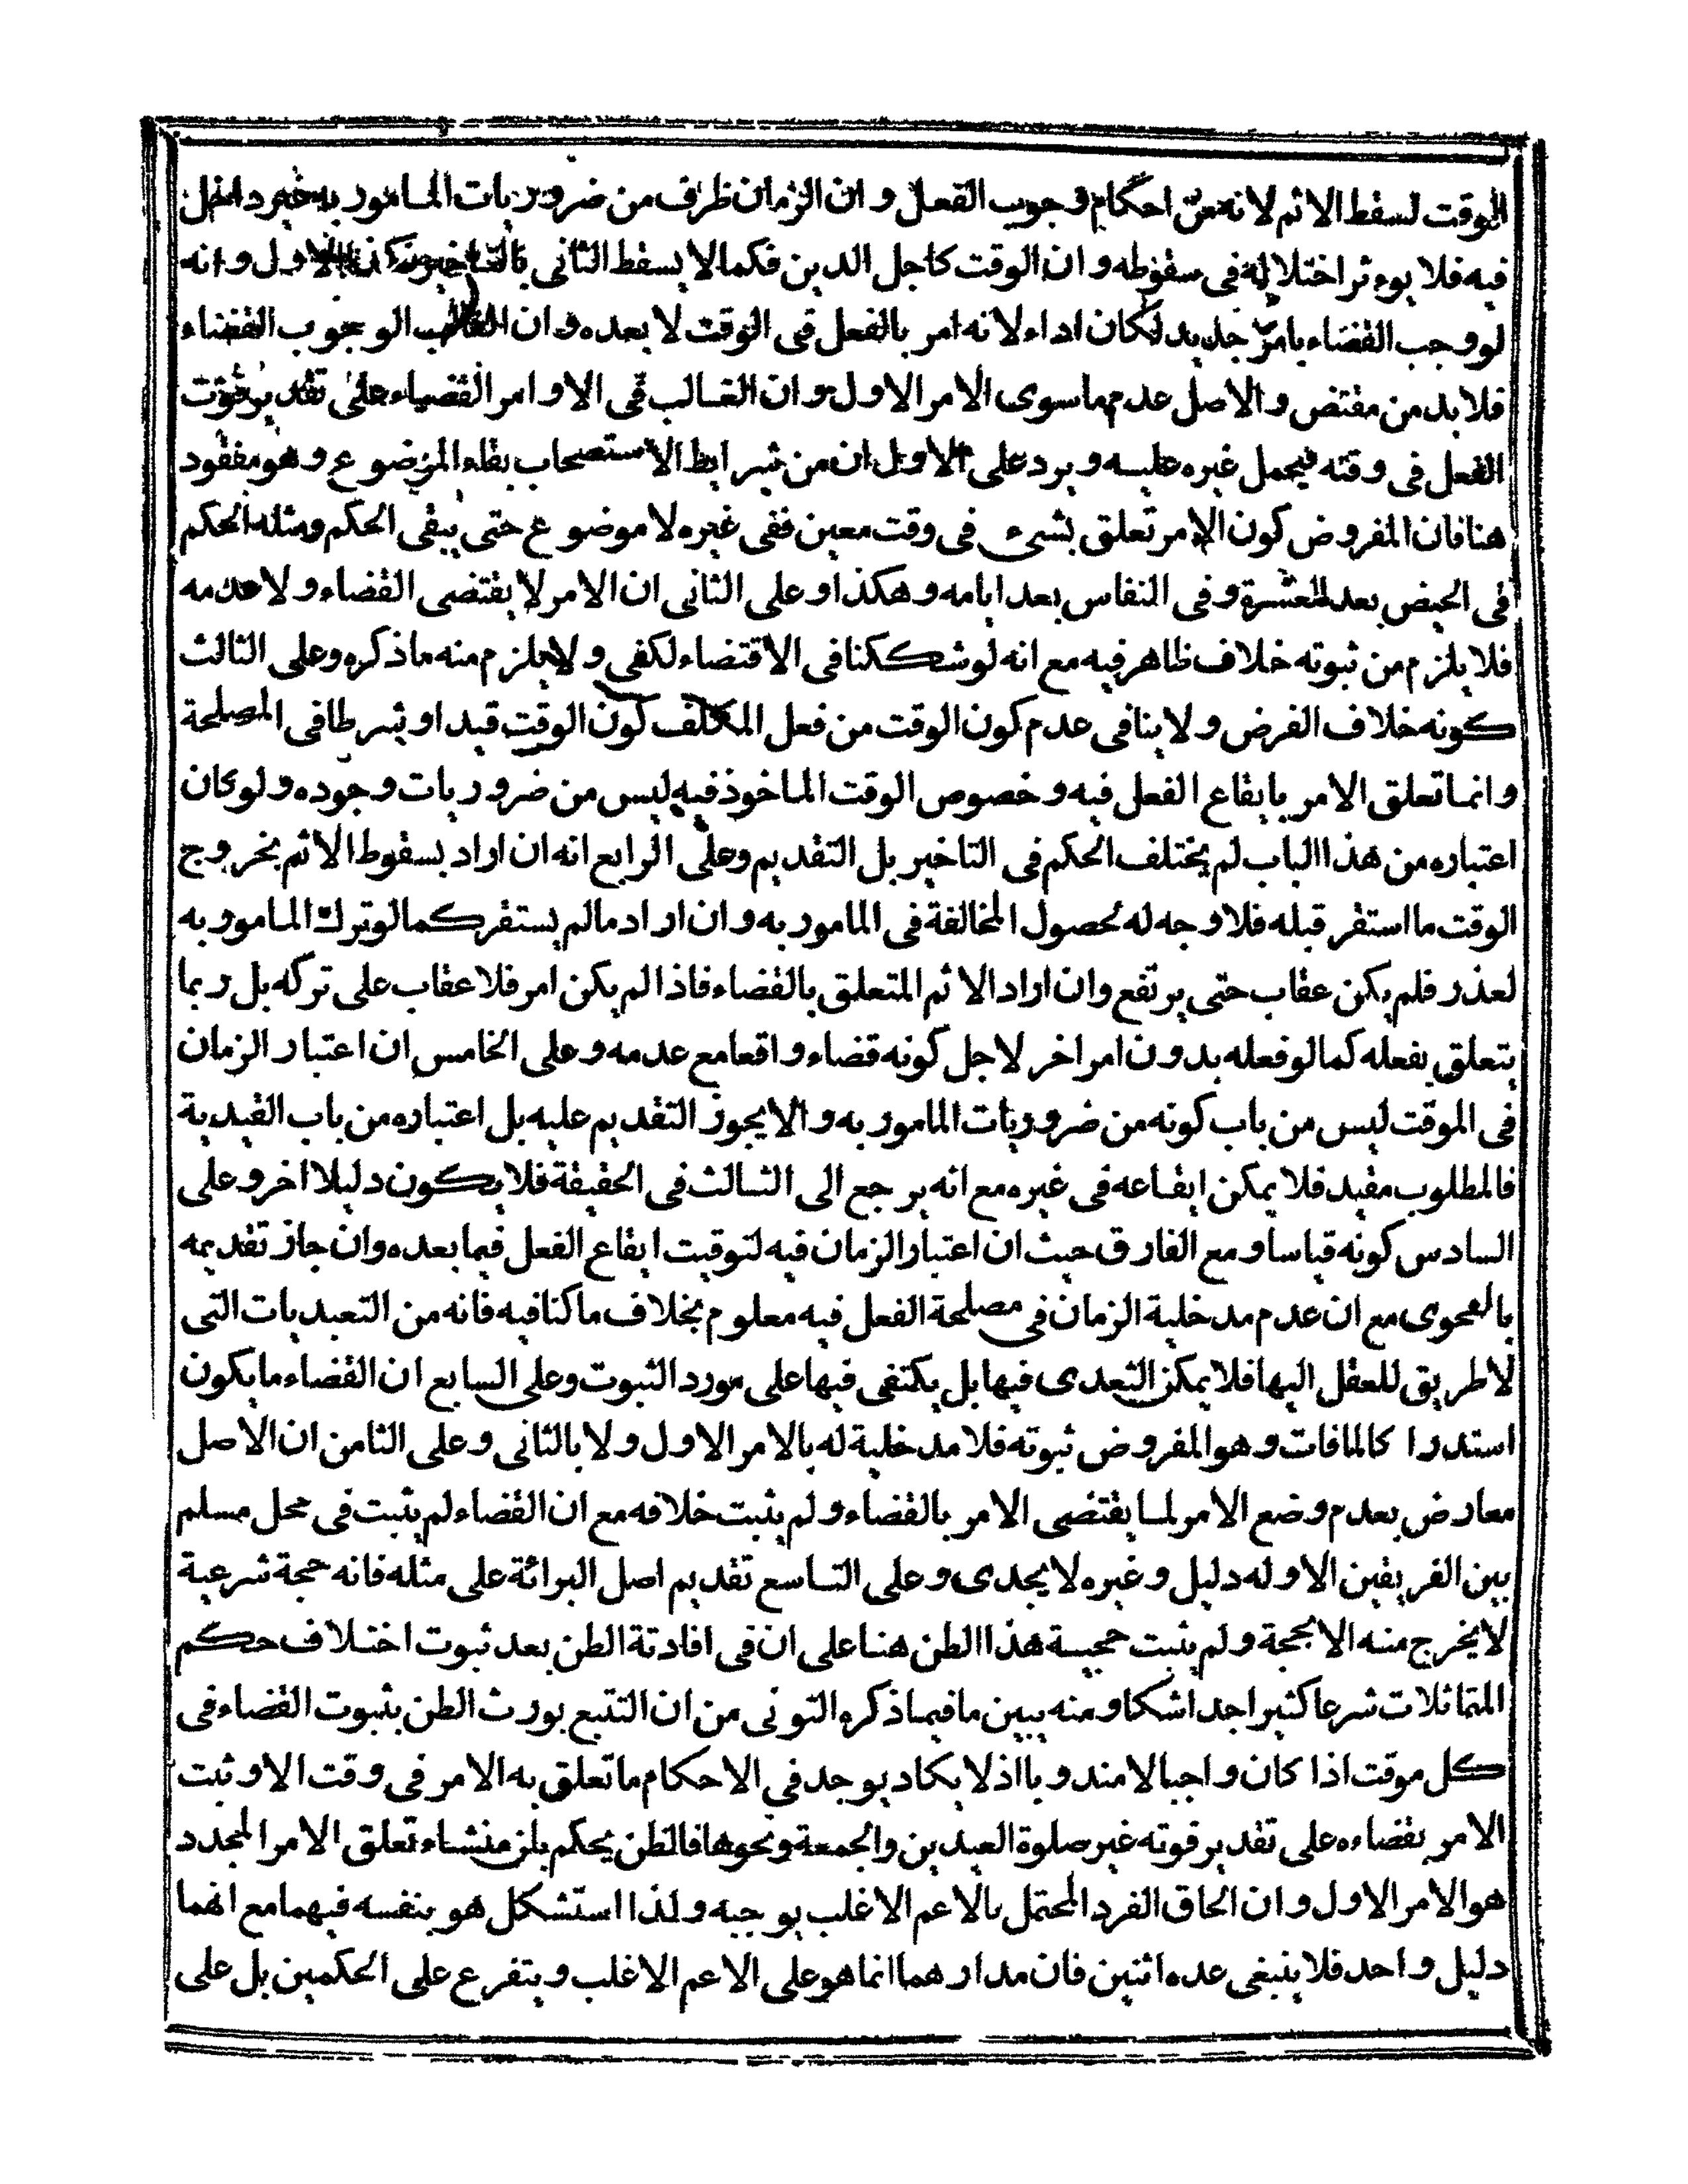 الوقت لسقط الاثم لانه من احكام وجوب الفعل وان الزمان ظرف من ضروريات المامور به غير داخل
فيه فلا يوءثر اختلاله فى سقوطه وان الوقت كاجل الدين فكما لا يسقط الثانى بالتاخير كذا الاول وانه
لو وجب القضاء بامر جديد لكان اداء لانه امر بالفعل فى الوقت لا بعده وان الوجوب القضاء
فلا بد من مقتض والاصل عدم ماسوى الامر الاول وان الغالب فى الاوامر القضاء على تقدير فوت
الفعل فى وقته فيحمل غيره عليه ويرد على الاول ان من شرايط الاستصحاب بقاء الموضوع وهو مفقود
هنا فان المفروض كون الامر تعلق بشىء فى وقت معين ففى غيره لا موضوع حتى يبقى الحكم ومثله الحكم
فى الحيض بعد العشرة وفى النفاس بعد ايامه وهكذا وعلى الثانى ان الامر لا يقتضى القضاء ولا عدمه
فلا يلزم من ثبوته خلاف ظاهر فيه مع انه لو شككنا فى الاقتضاء لكفى ولا يلزم منه ما ذكره وعلى الثالث
كونه خلاف الفرض ولا ينافى عدم كون الوقت من فعل المكلف كون الوقت قيدا وشرطا فى المصلحة
وانما تعلق الامر بايقاع الفعل فيه وخصوص الوقت الماخوذ فيه ليس من ضروريات وجوده ولو كان
اعتباره من هذا الباب لم يختلف الحكم فى التاخير بل التقديم وعلى الرابع انه ان اراد بسقوط الاثم بخروج
الوقت ما استقر قبله فلا وجه له لحصول المخالفة فى المامور به وان اراد مالم يستقر كما لو ترك المامور به
لعذر فلم يكن عقاب حتى يرتفع وان اراد الاثم المتعلق بالقضاء فاذا لم يكن امر فلا عقاب على تركه بل ربما
يتعلق بفعله كما لو فعله بدون امر اخر لاجل كونه قضاء واقعا مع عدمه وعلى الخامس ان اعتبار الزمان
فى الموقت ليس من باب كونه من ضروريات المامور به والا يجوز التقديم عليه بل اعتباره من باب القيدية
فالمطلوب مقيد فلا يمكن ايقاعه فى غيره مع انه يرجع الى الثالث فى الحقيقة فلا يكون دليلا اخر وعلى
السادس كونه قياسا ومع الفارق حيث ان اعتبار الزمان فيه لتوقيت ايقاع الفعل فيما بعده وان جاز تقديمه
بالفحوى مع ان عدم مدخلية الزمان فى مصلحة الفعل فيه معلوم بخلاف ما كنا فيه فانه من التعبديات التى
لا طريق للعقل اليها فلا يمكن التعدى فيها بل يكتفى فيها على مورد الثبوت وعلى السابع ان القضاء ما يكون
استدرا كا لمافات وهو المفروض ثبوته فلا مدخلية له بالامر الاول ولا بالثانى وعلى الثامن ان الاصل
معارض بعدم وضع الامر لما يقتضى الامر بالقضاء ولم يثبت خلافه مع ان القضاء لم يثبت فى محل مسلم
بين الفريقين الا وله دليل وغيره لا يجدى وعلى التاسع تقديم اصل البرائة على مثله فانه حجة شرعية
لا يخرج منه الا بحجة ولم يثبت حجية هذا الظن هنا على ان فى افادتة الظن بعد ثبوت اختلاف حكم
المتماثلات شرعا كثيرا جدا اشكا ومنه يبين ما فيما ذكره التونى من ان التتبع يورث الظن بثبوت القضاء فى
كل موقت اذا كان واجبا لا مندوبا اذ لا يكاد يوجد فى الاحكام ما تعلق به الامر فى وقت الا وثبت
الامر بقضاءه على تقدير فوته غير صلوة العيدين والجمعة ونحوها فالظن يحكم بان منشاء تعلق الامر المجدد
هو الامر الاول وان الحاق الفرد المحتمل بالاعم الاغلب يوجبه ولذا استشكل هو بنفسه فيهما مع انهما
دليل واحد فلا ينبغى عده اثنين فان مدارهما انما هو على الاعم الاغلب ويتفرع على الحكمين بل على